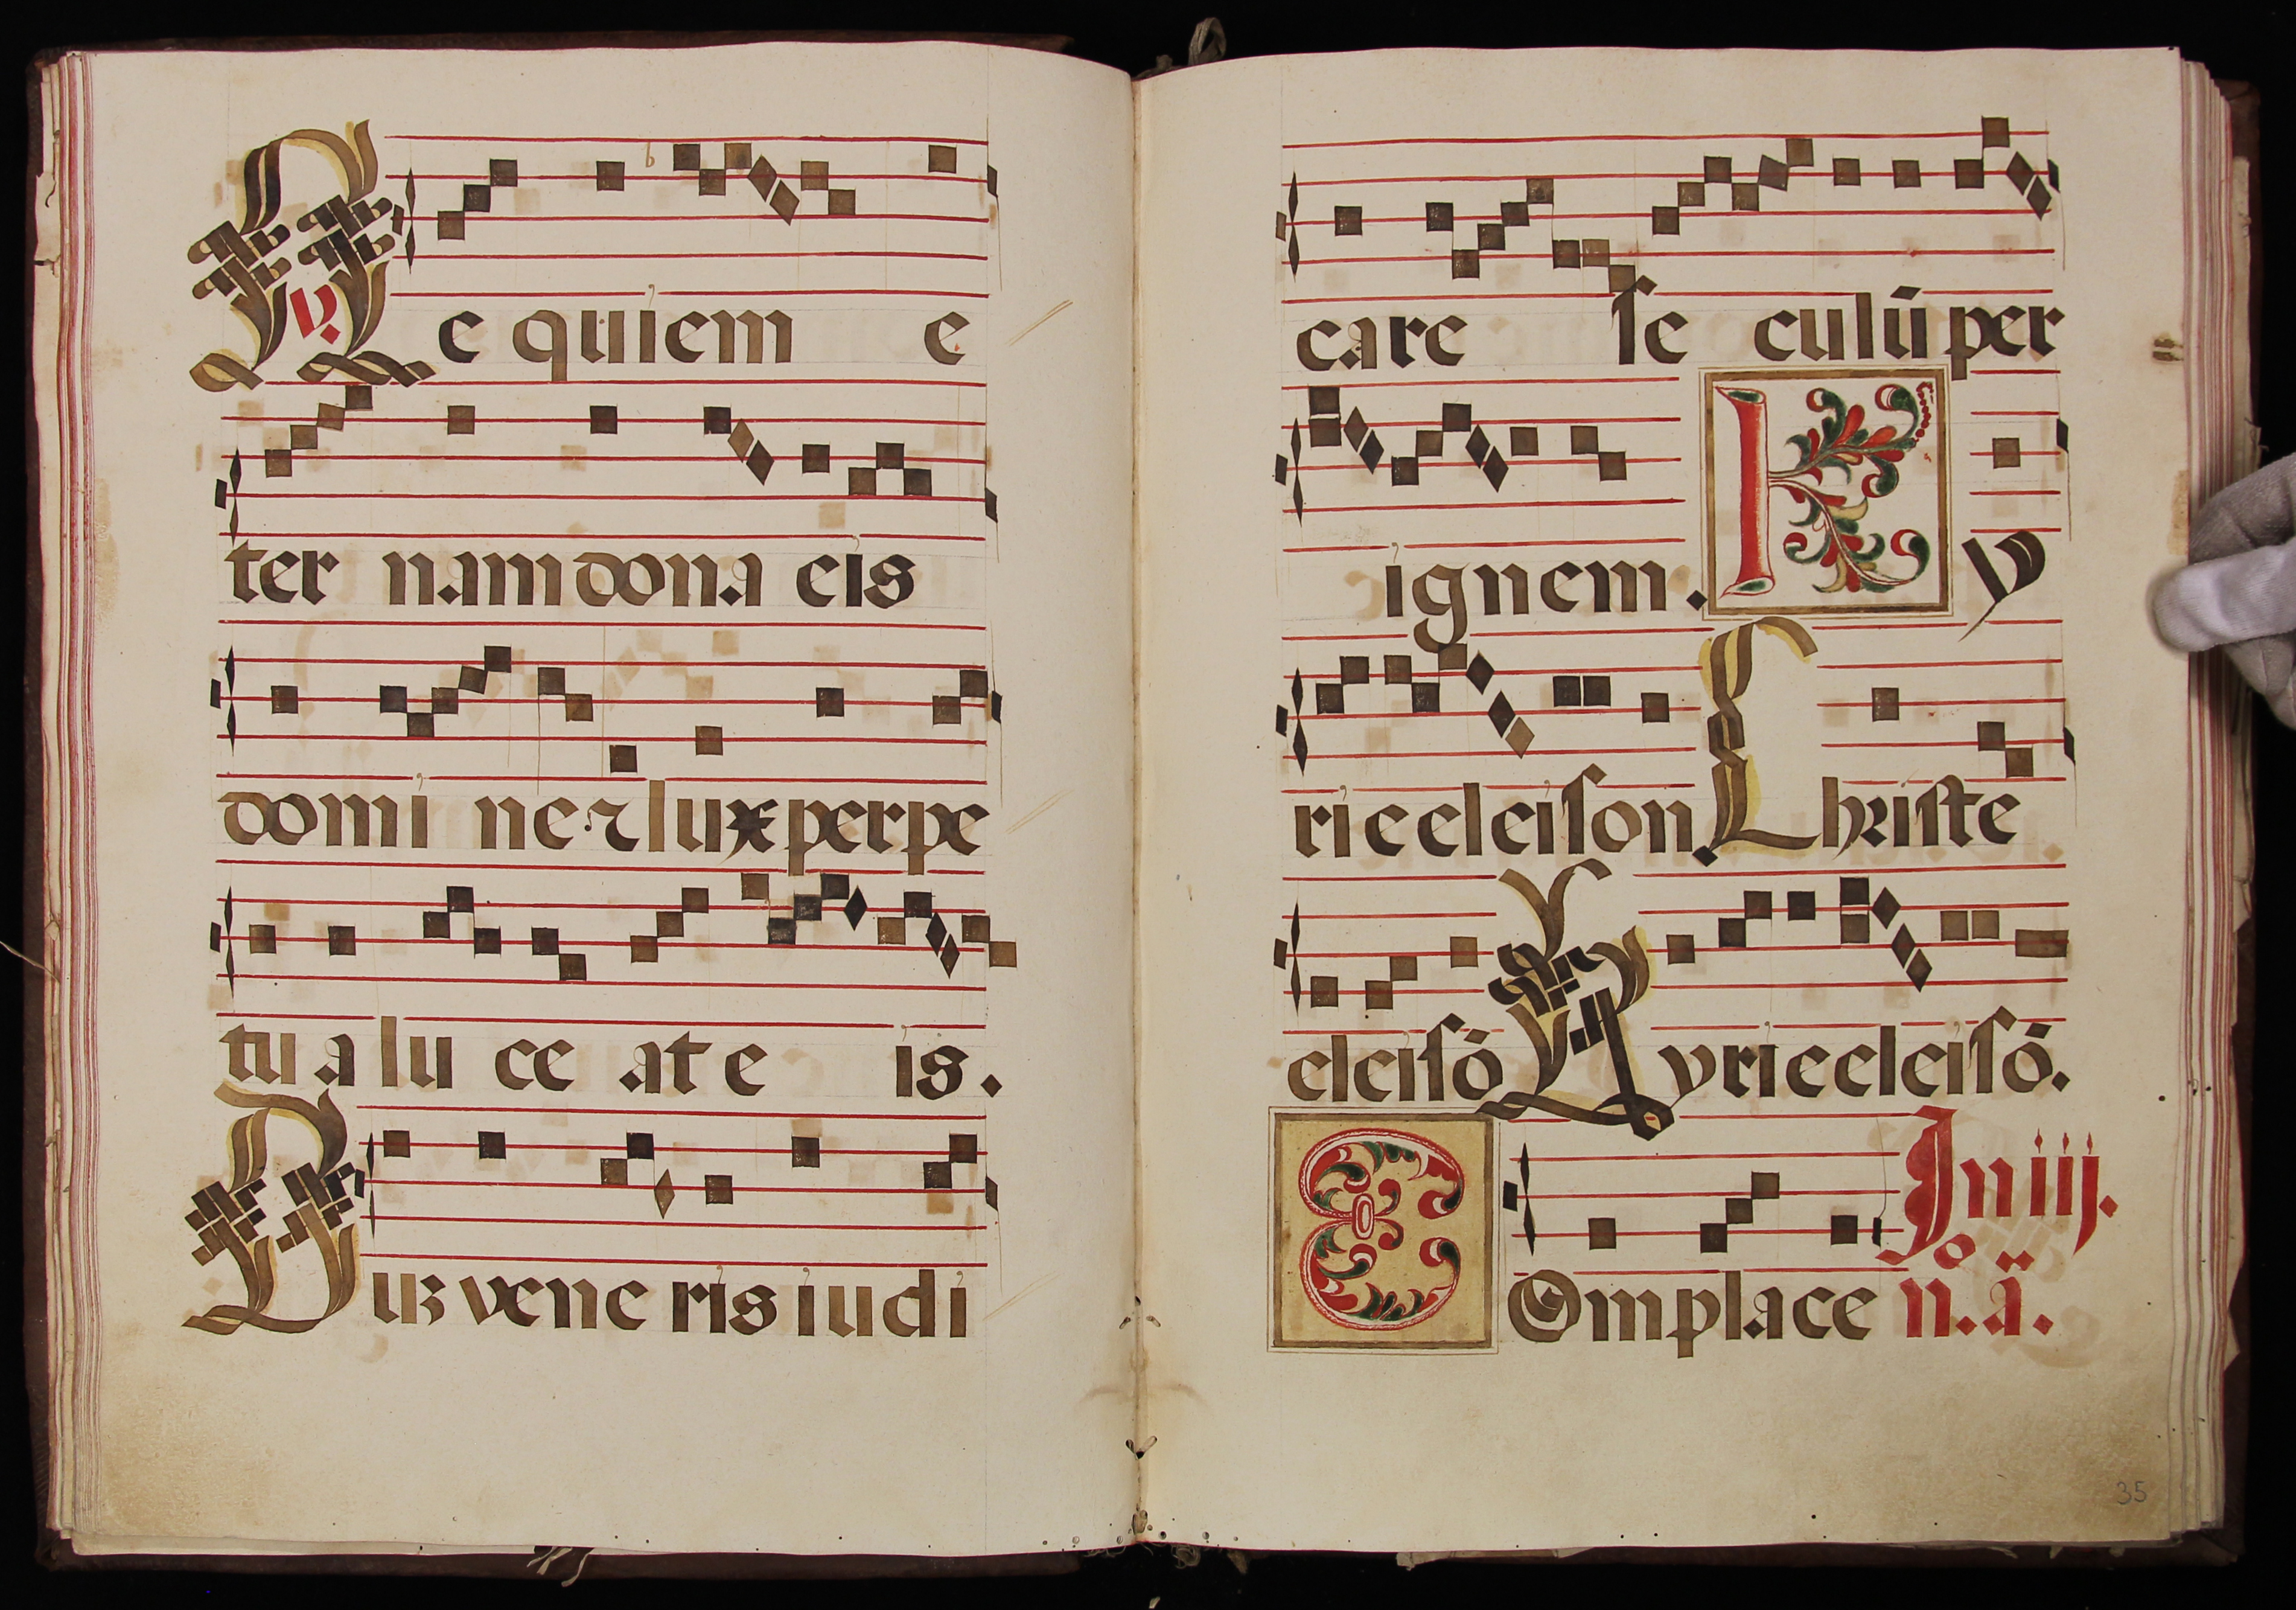 ℣. Requiem e
ter nam dona eis
domi ne ⁊ lux perpe
tu a lu ce at e is.
Duz vene ris iudi
care se culū per
ignem. Ky
rie eleison. Christe
eleisō Kyrie eleisō.
COmplace
In iij.
n.º ā.
35